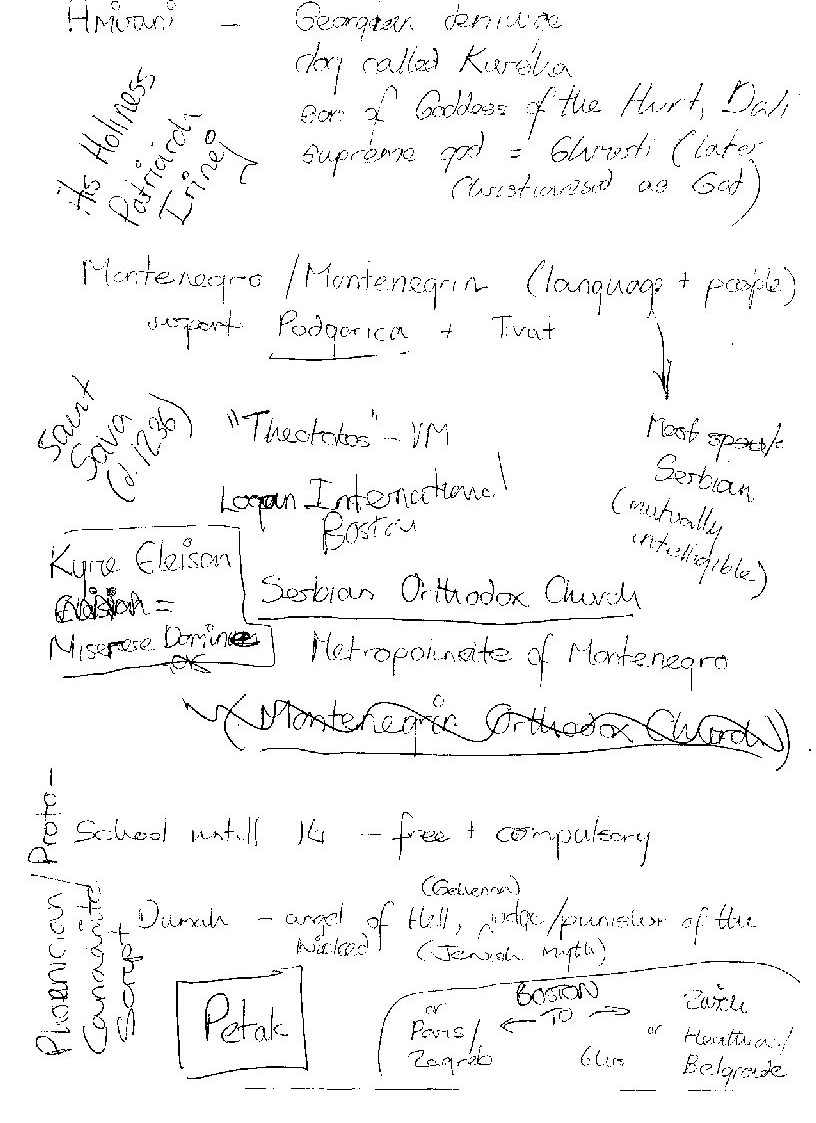 Amirani - Georgian demiurge
dog called Kursha
son of Goddess of the Hunt, Dali
supreme god = Ghmerti (later
Christianised as God)
His Holiness
Patriarch
Irinej
Montenegro / Montenegrin (language + people)
airport Podgorica + Tivat
Saint
Sava
(d. 1236)
"Theotokos" - VM
Most speak
Serbian
(mutually
intelligible)
Logan International
Boston
Kyrie Eleison
=
Miserere Domine
Serbian Orthodox Church
Metropolinate of Montenegro
(Montenegrin Orthodox Church)
School untill 14 - free + compulsory
Phoenician / Proto-
Canaanite
Script
(Gehenna)
Dumah - angel of Hell, judge/punisher of the
wicked (Jewish myth)
Petak
BOSTON
TO
or
Paris/
Zagreb
6hrs
or
Zurich
Heathrow/
Belgrade